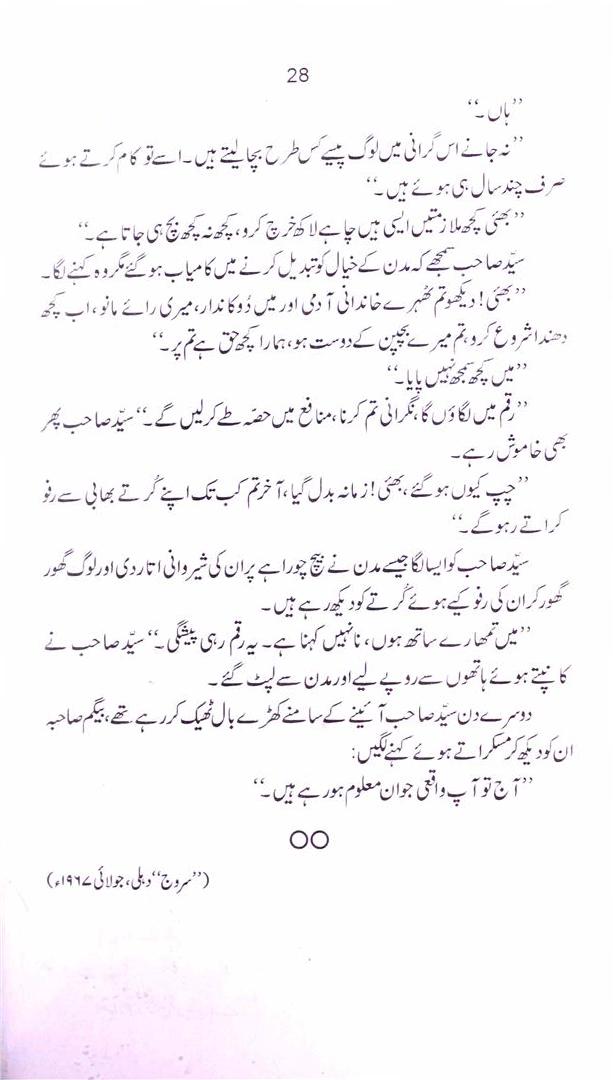 28
’’ہاں۔‘‘
’’نہ جانے اس گرانی میں لوگ پیسے کس طرح بچا لیتے ہیں۔ اسے تو کام کرتے ہوئے
صرف چند سال ہی ہوئے ہیں۔‘‘
’’بھئی کچھ ملازمتیں ایسی ہیں چاہے لاکھ خرچ کرو، کچھ نہ کچھ بچ ہی جاتا ہے۔‘‘
سیّد صاحب سمجھے کہ مدن کے خیال کو تبدیل کرنے میں کامیاب ہو گئے مگر وہ کہنے لگا۔
’’بھئی! دیکھو تم ٹھہرے خاندانی آدمی اور میں دُوکاندار، میری رائے مانو، اب کچھ
دھندا شروع کرو، تم میرے بچپن کے دوست ہو، ہمارا کچھ حق ہے تم پر۔‘‘
’’میں کچھ سمجھ نہیں پایا۔‘‘
’’رقم میں لگاؤں گا، نگرانی تم کرنا، منافع میں حصّہ طے کر لیں گے۔‘‘ سیّد صاحب پھر
بھی خاموش رہے۔
’’چپ کیوں ہو گئے، بھئی! زمانہ بدل گیا، آخر تم کب تک اپنے کُرتے بھابی سے رفو
کراتے رہو گے۔‘‘
سیّد صاحب کو ایسا لگا جیسے مدن نے بیچ چوراہے پر ان کی شیروانی اتار دی اور لوگ گھور
گھور کر ان کی رفو کیے ہوئے کُرتے کو دیکھ رہے ہیں۔
’’میں تمھارے ساتھ ہوں، نا نہیں کہنا ہے۔ یہ رقم رہی پیشگی۔‘‘ سیّد صاحب نے
کانپتے ہوئے ہاتھوں سے روپے لیے اور مدن سے لپٹ گئے۔
دوسرے دن سیّد صاحب آئینے کے سامنے کھڑے بال ٹھیک کر رہے تھے، بیگم صاحبہ
ان کو دیکھ کر مسکراتے ہوئے کہنے لگیں:
’’آج تو آپ واقعی جوان معلوم ہو رہے ہیں۔‘‘
○○
(’’سروج‘‘ دہلی، جولائی ۱۹۶۷ء)